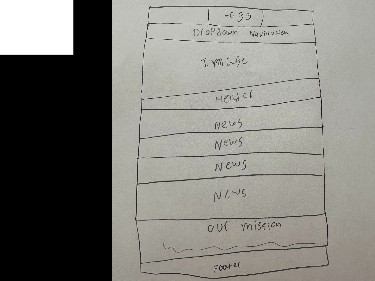 Dropdown Navigation
Image
Header
News
News
News
News
our mission
Footer